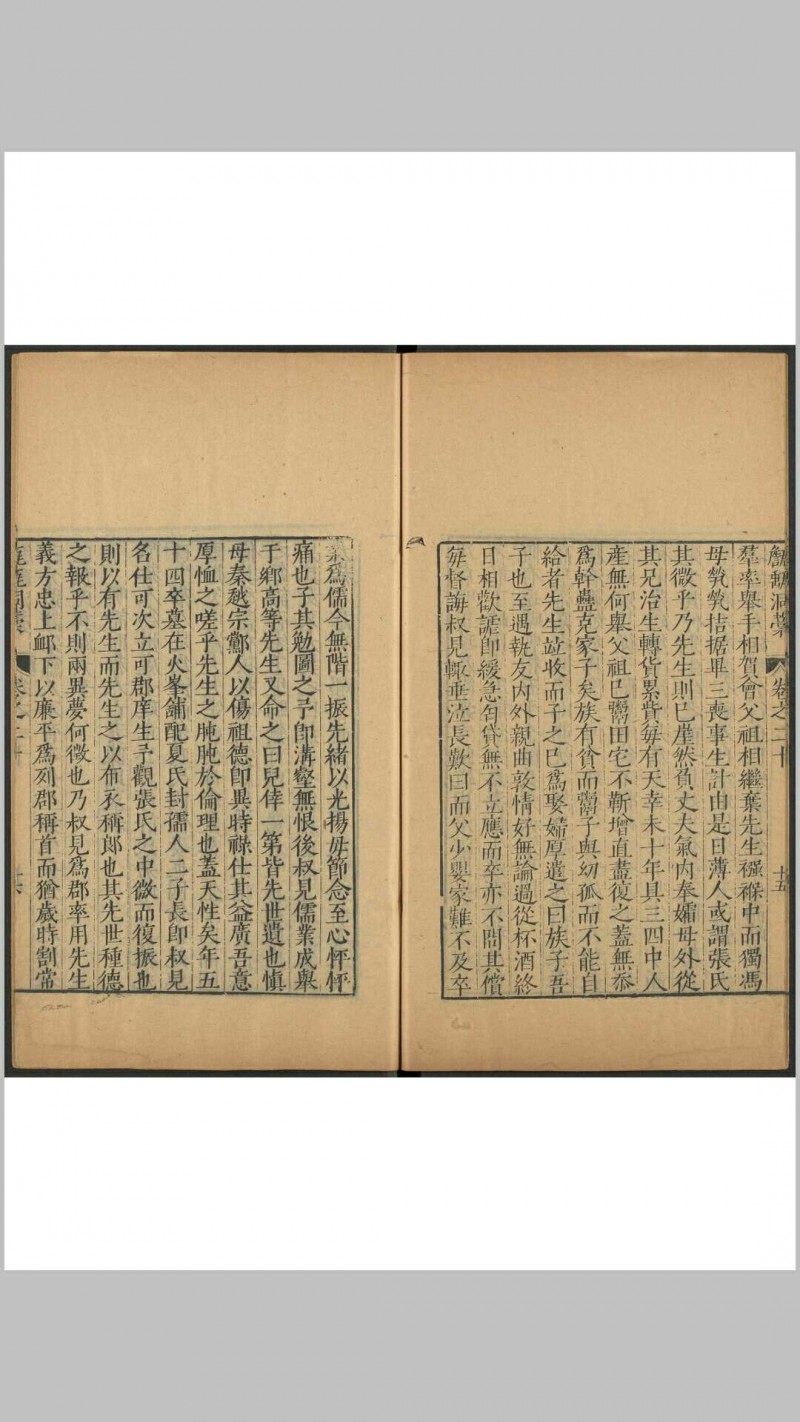 洞藁 卷之二十 十五
羣率舉手相賀會父祖相繼棄先生襁褓中而獨馮
母煢煢拮据畢三喪事生計由是日薄人或謂張氏
其微乎乃先生則已崖然負丈夫氣内奉孀母外從
其兄治生轉貨累貲每有天幸未十年具三四中人
產無何舉父祖已鬻田宅不靳增直盡復之蓋無忝
爲幹蠱克家子矣族有貧而鬻子與幼孤而不能自
給者先生竝收而子之已爲娶婦厚遣之曰族子吾
子也至遇執友内外親曲敦情好無論過從杯酒終
日相歡謔卽緩急匄貸無不立應而卒亦不問其償
每督誨叔見輙垂泣長歎曰而父少嬰家難不及卒
業爲儒今無階一振先緒以光揚母節念至心怦怦
痛也子其勉圖之予卽溝壑無恨後叔見儒業成舉
于鄉高等先生又命之曰兒倖一第皆先世遺也愼
母秦越宗鄰人以傷祖德卽異時祿仕其益廣吾意
厚恤之嗟乎先生之肫肫於倫理也蓋天性矣年五
十四卒墓在火峯舖配夏氏封孺人二子長卽叔見
名仕可次立可郡庠生予觀張氏之中微而復振也
則以有先生而先生之以布衣稱郎也其先世種德
之報乎不則兩異夢何徵也乃叔見爲郡率用先生
義方忠上䘏下以廉平爲列郡稱首而猶歲時割常
卷之二十 十六